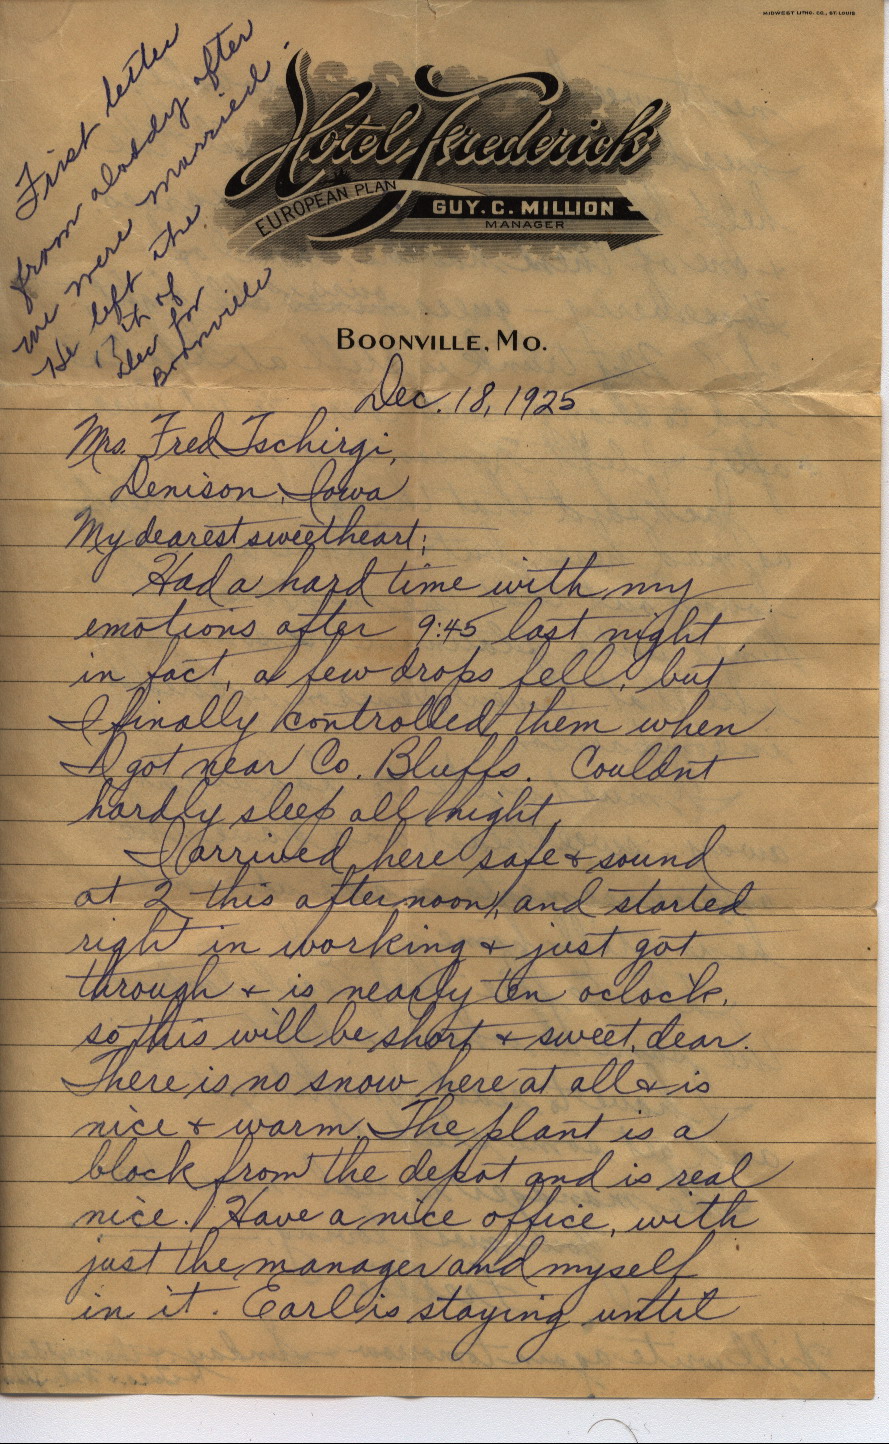 MIDWEST LITHO. CO., ST. LOUIS
First letter
from daddy after
we were married.
He left the
17th of
Dec for
Boonville
Hotel Frederick
EUROPEAN PLAN
GUY. C. MILLION
MANAGER
BOONVILLE, MO.
Dec. 18, 1925
Mrs. Fred Tschirgi,
Denison, Iowa
My dearest sweetheart;
Had a hard time with my
emotions after 9:45 last night,
in fact, a few drops fell, but
I finally controlled them when
I got near Co. Bluffs. Couldnt
hardly sleep all night.
I arrived here safe & sound
at 2 this afternoon, and started
right in working & just got
through & is nearly ten oclock,
so this will be short & sweet, dear.
There is no snow here at all & is
nice & warm. The plant is a
block from the depot and is real
nice. Have a nice office, with
just the manager and myself
in it. Earl is staying until